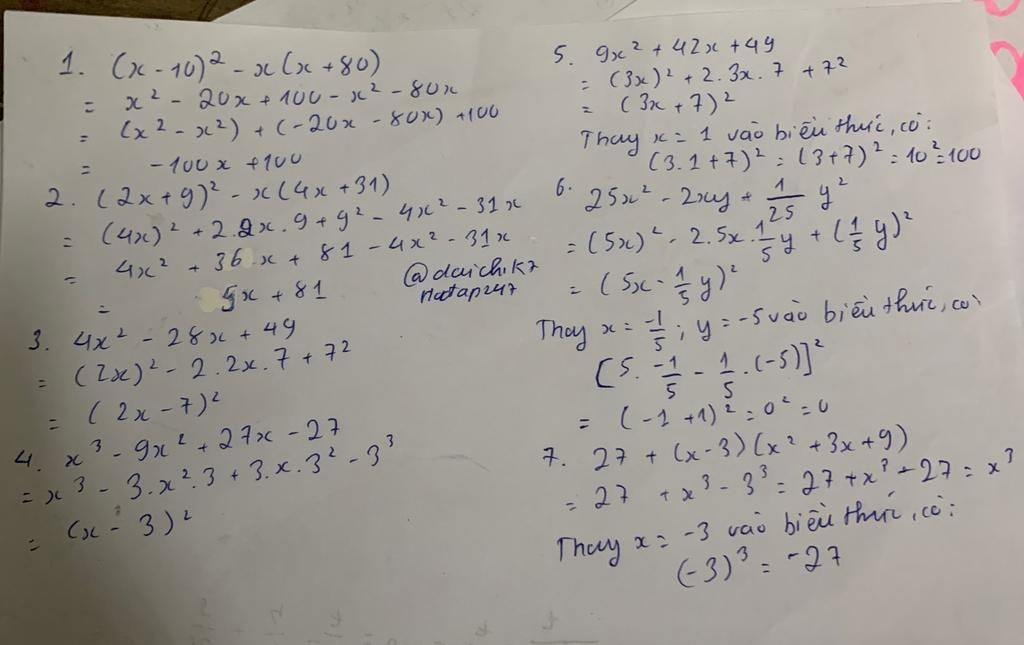 1. (x - 10)² - x(x + 80)
= x² - 20x + 100 - x² - 80x
= (x² - x²) + (-20x - 80x) + 100
= -100x + 100
2. (2x + 9)² - x(4x + 31)
= (4x)² + 2.2x.9 + 9² - 4x² - 31x
= 4x² + 36x + 81 - 4x² - 31x
= 5x + 81
@daichik7
Hoctap247
3. 4x² - 28x + 49
= (2x)² - 2.2x.7 + 7²
= (2x - 7)²
4. x³ - 9x² + 27x - 27
= x³ - 3.x².3 + 3.x.3² - 3³
= (x - 3)²
5. 9x² + 42x + 49
= (3x)² + 2.3x.7 + 7²
= (3x + 7)²
Thay x = 1 vào biểu thức, có:
(3.1 + 7)² = (3 + 7)² = 10² = 100
6. 25x² - 2xy + 1/25 y²
= (5x)² - 2.5x.1/5 y + (1/5 y)²
= (5x - 1/5 y)²
Thay x = -1/5 ; y = -5 vào biểu thức, có:
[5. -1/5 - 1/5 .(-5)]²
= (-1 + 1)² = 0² = 0
7. 27 + (x - 3)(x² + 3x + 9)
= 27 + x³ - 3³ = 27 + x³ - 27 = x³
Thay x = -3 vào biểu thức, có:
(-3)³ = -27